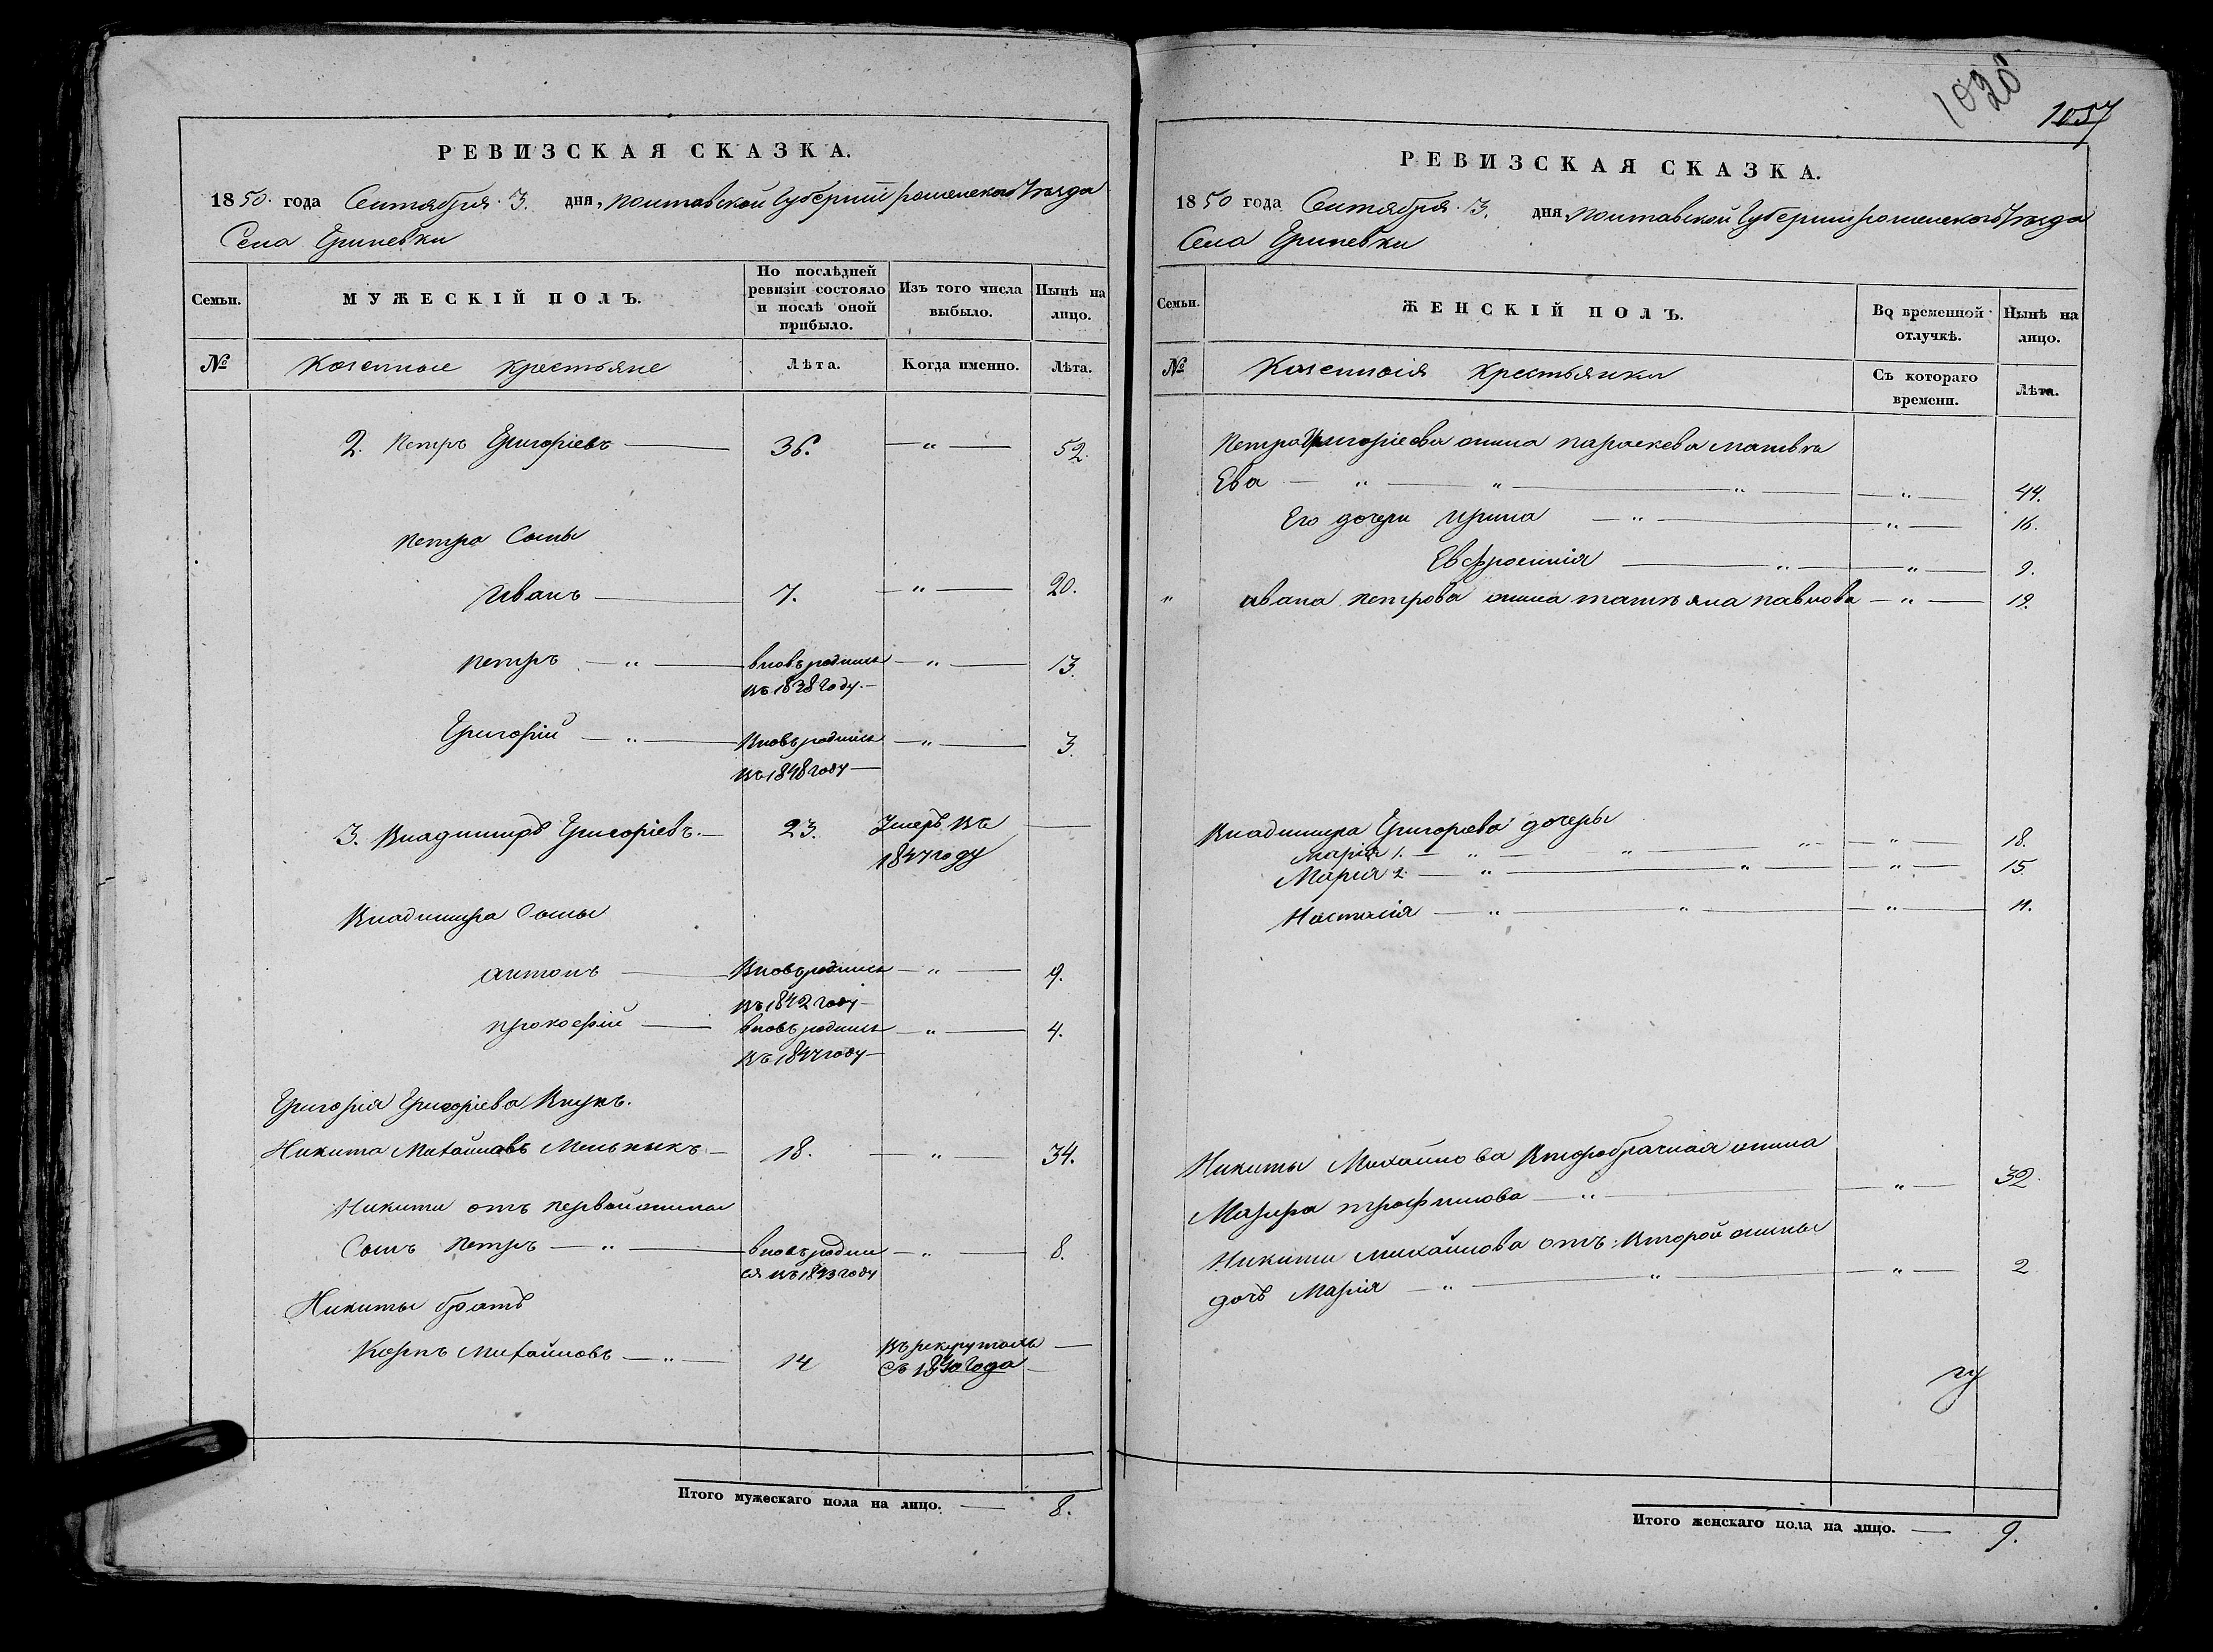 РЕВИЗСКАЯ СКАЗКА.
1850. года Сентября 3. дня, Полтавской Губерніи роменского Уѣзда
Села Гриневки
Семьи.
МУЖЕСКІЙ ПОЛЪ.
По послѣдней ревизіи состояло и послѣ оной прибыло.
Изъ того числа выбыло.
Нынѣ на лицо.
№
Козенные крестьяне
Лѣта.
Когда именно.
Лѣта.
2. Петръ Григоріевъ — 36. — " — 52.
Петра Сыны
Иванъ — 7. — " — 20.
Петръ — " — вновь родился — " — 13.
въ 1838 году. —
Григорій — " — Вновь родился — " — 3.
въ 1848 году —
3. Владимиръ Григоріевъ. — 23. Умеръ въ —
1847 году
Владимира Сыны
Антонъ — Вновь родился — " — 9.
въ 1842 году —
Прокофій — вновь родился — " — 4.
въ 1847 году —
Григорія Григоріева Внукъ.
Никита Михайловъ Мельникъ — 18. — " — 34.
Никиты отъ первой жены
Сынъ Петръ — " — вновь родил — " — 8.
ся въ 1843 году
Никиты братъ
Карпъ Михайловъ — " — 14 въ рекрутахъ —
съ 1840 года —
Итого мужескаго пола на лицо. — 8.
1026
1057
РЕВИЗСКАЯ СКАЗКА.
1850 года Сентября. 3. дня, Полтавской Губерніи роменского Уѣзда
Села Гриневки
Семьи.
ЖЕНСКІЙ ПОЛЪ.
Во временной отлучкѣ.
Нынѣ на лицо.
№
Козенныія Крестьянки
Съ котораго времени.
Лѣта.
Петра Григоріева жина Параскева Матвѣ
Ева — " — " — " — " — 44.
Его дочери Ирина — " — " — 16.
Евфросинія — " — " — 9.
" Ивана Петрова жина Татьяна Павлова — " — 19.
Владимира Григорева дочеры
Марія 1. — " — " — " — " — 18.
Марія 2. — " — " — " — 15
Настасія — " — " — " — 11.
Никиты Михайлова Второбрачная жина
Марфа Трофимова — " — " — 32.
Никиты Михайлова отъ Второй жины
дочь Марія — " — " — " — 2
Итого женскаго пола на лицо. — 9.